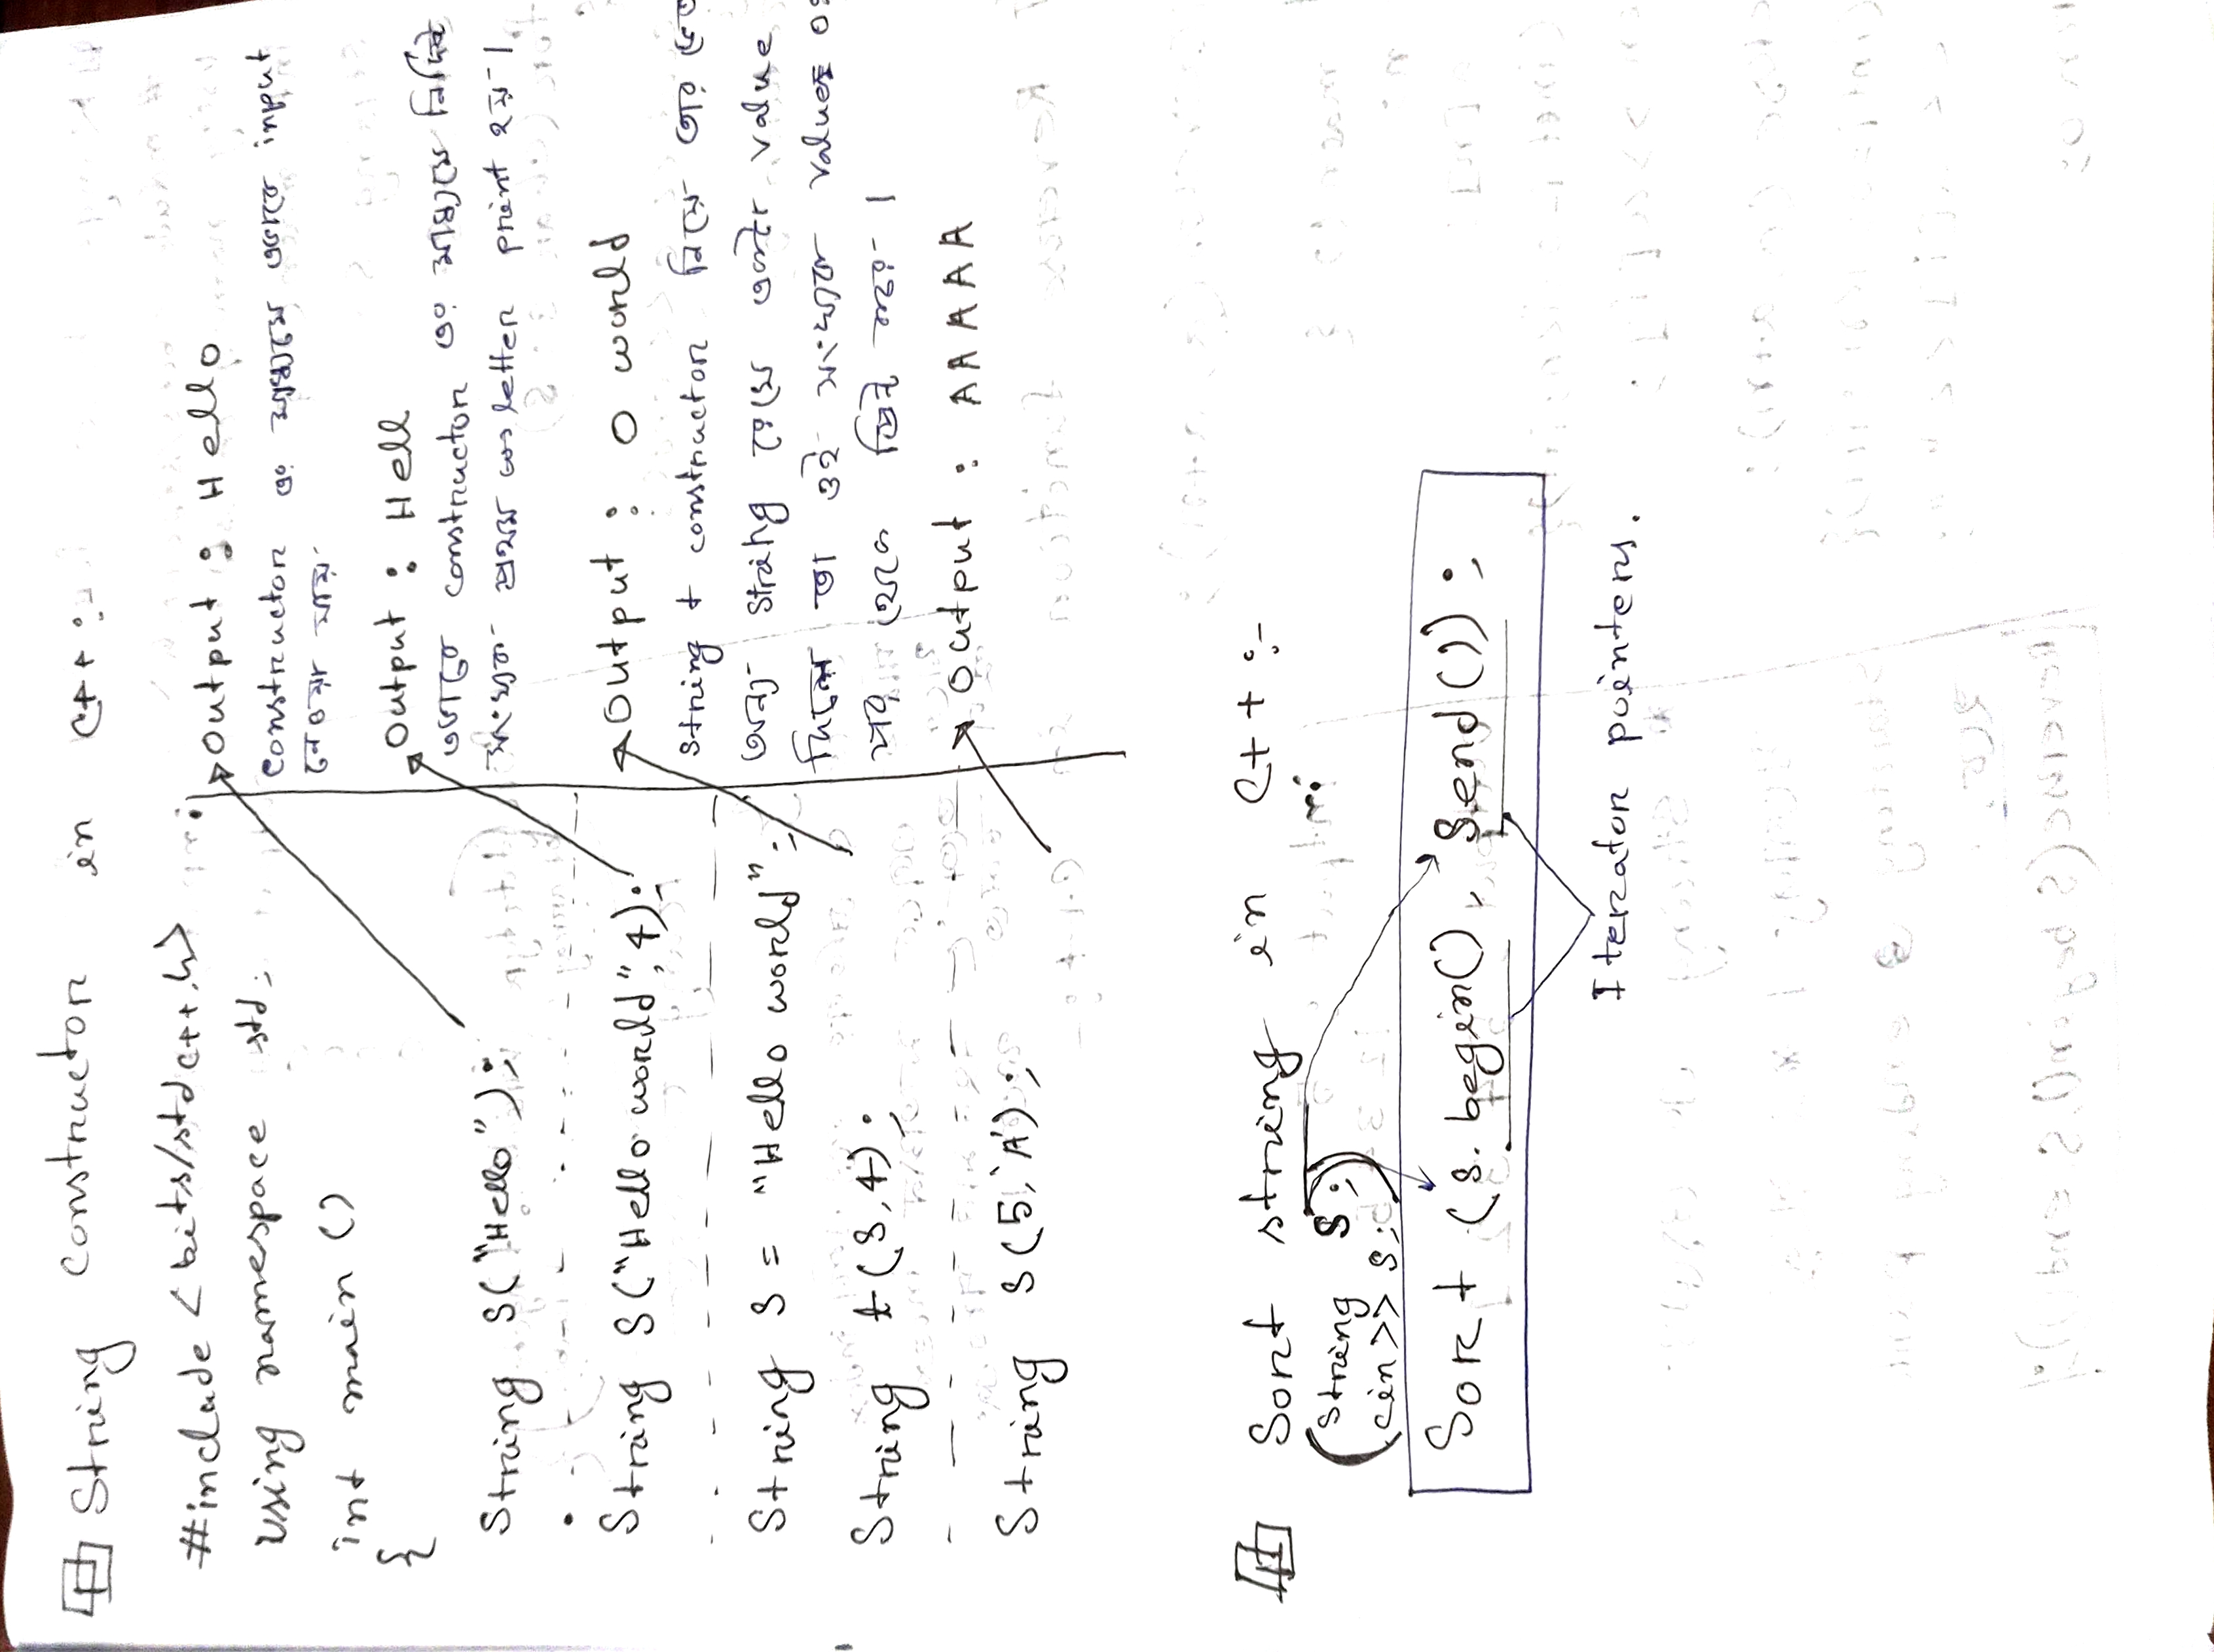 String constructor in C++ :-
#include <bits/stdc++.h>
using namespace std;
int main ()
{
String S("Hello");
String S("Hello world", 4);
String S = "Hello world";
String t(S,4);
String S(5,'A');
Output : Hello
constructor এর মাধ্যমে এভাবে input
নেওয়া যায়
Output : Hell
এভাবে constructor এর মাধ্যমে নির্দিষ্ট
সংখ্যক প্রথম letter print হয় ।
Output : o world
String t constructor নিয়ে তার
অন্য string রেখে একটা value
দিলে তা ওই সংখ্যক
পর থেকে প্রিন্ট করে ।
Output : AAAAA
Sort string in C++ :-
(String S;)
cin>> S;
Sort (s.begin(), S.end());
Iterator pointers.